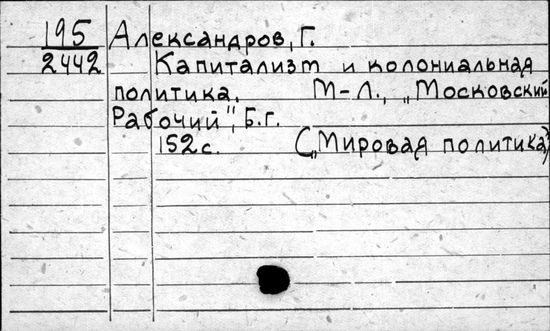 195 Александров, Г.
2442 Капитализм и колониальная
политика. М-Л., „Московский
Рабочий", Б.г.
152 с. („Мировая политика")